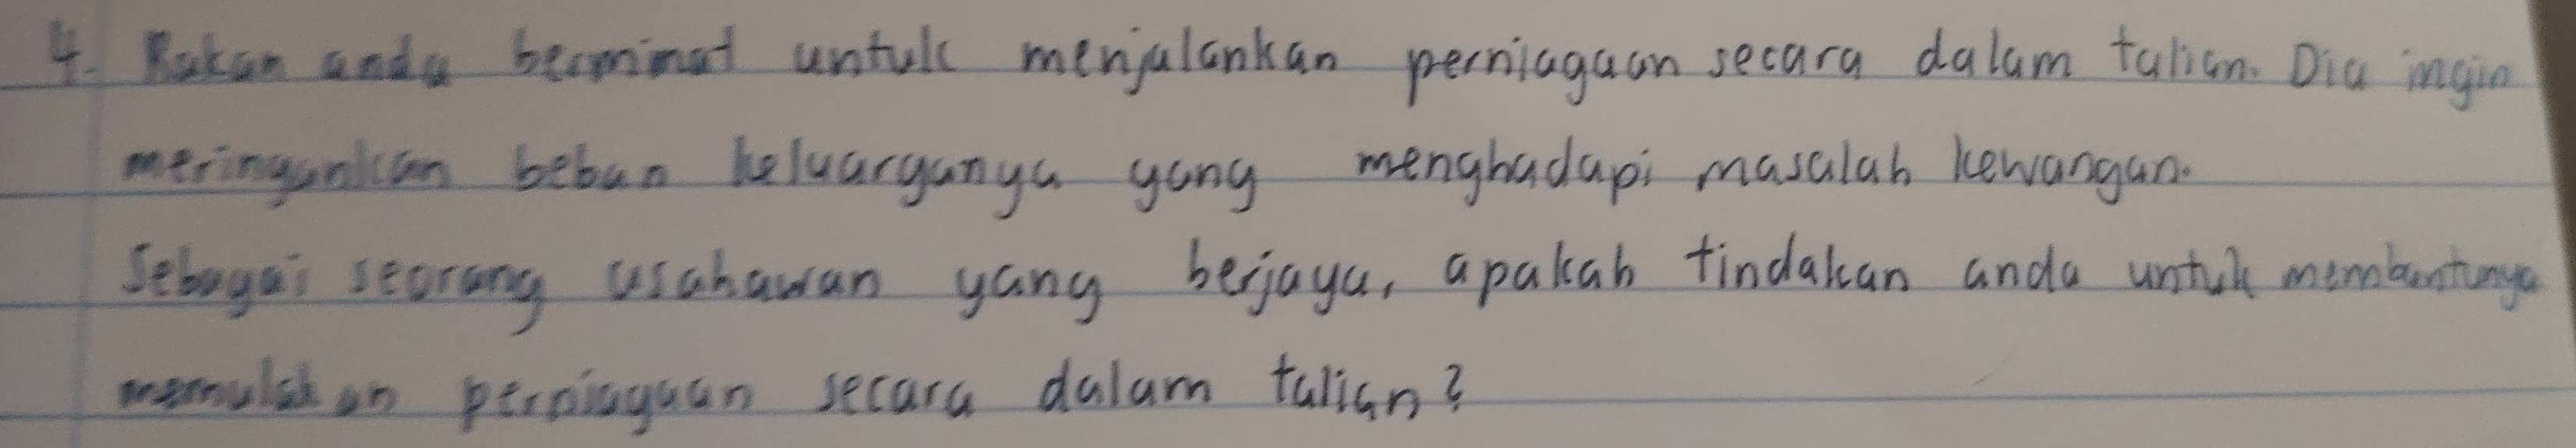 4. Rakan anda berminat untuk menjalankan perniagaan secara dalam talian. Dia ingin
meringankan beban keluarganya yang menghadapi masalah kewangan.
Sebagai seorang usahawan yang berjaya, apakah tindakan anda untuk membantunya
memulakan perniagaan secara dalam talian?